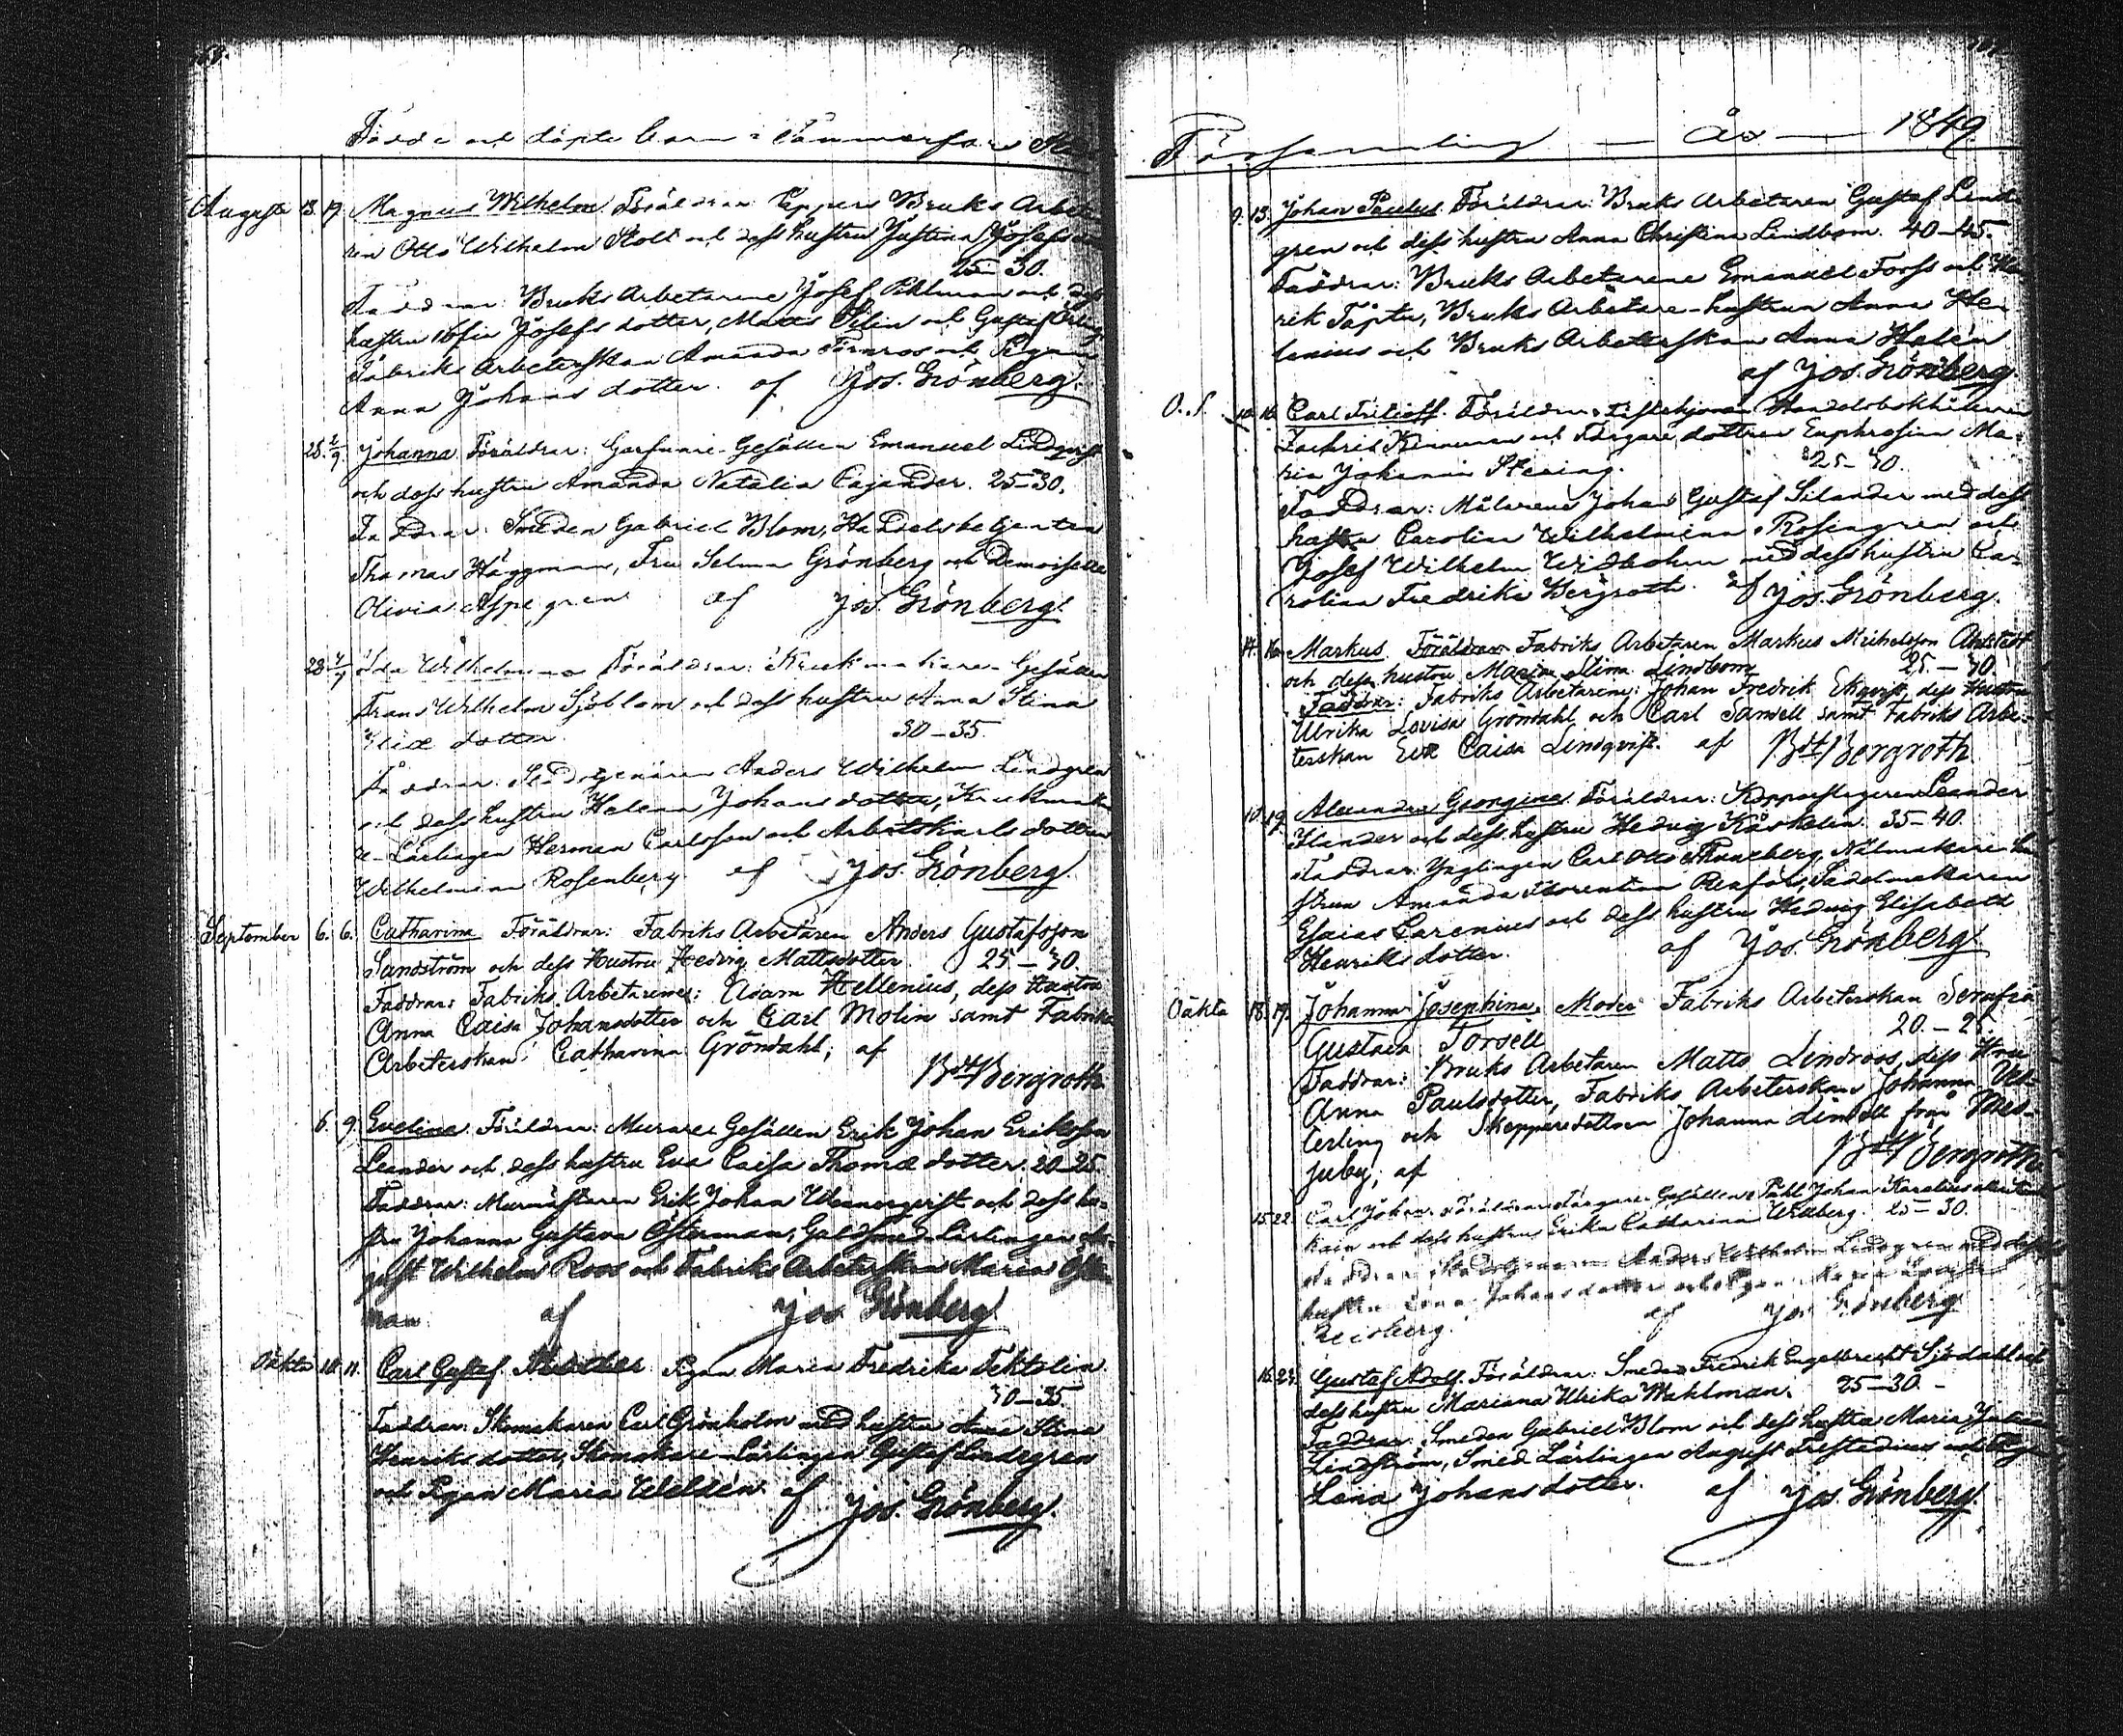 Födde och döpte barn i Tammerfors Stads
Augusti 13. 17. Magnus Wilhelm Föräldrar: Pappers Bruks Arbeta-
ren Otto Wilhelm Stolt och dess hustru Justina Josefs
25–30.
Faddrar: Bruks Arbetarene Josef Pihlman och dess
hustru Josefs dotter, Matts Selin och Gustaf
Fabriks Arbeterskan Amanda Törnroos och Pigan
Anna Johans dotter. af Jos. Grönberg.
28. 2/9. Johanna Föräldrar: Garfvare-Gesällen Emanuel Lindqvist
och dess hustru Amanda Natalia Cajander. 25–30.
Faddrar: Smeden Gabriel Blom, Handelsbetjenten
Thomas Häggman, Fru Selma Grönberg och Demoiselle
Olivia Aspegren af Jos. Grönberg.
28. Ida Wilhelmina Föräldrar: Krukmakare-Gesällen
Frans Wilhelm Sjöblom och dess hustru Anna Stina
dotter. 30–35.
Faddrar: Anders Wilhelm Lindgren
och dess hustru Helena Johans dotter, Krukmaka-
re-Lärlingen Herman Carlsson och Arbetskarls dottren
Wilhelmina Rosenberg af Jos. Grönberg.
September 6. 6. Catharina Föräldrar: Fabriks Arbetaren Anders Gustafsson
Sandström och dess Hustru Hedvig Mattsdotter. 25–30.
Faddrar: Fabriks Arbetarene: Adam Hellenius, dess Hustru
Anna Caisa Johansdotter och Carl Molin samt Fabriks
Arbeterskan Catharina Gröndahl; af
Bdt Bergroth.
6. 9. Evelina Föräldrar: Murare-Gesällen Erik Johan Eriksson
Leander och dess hustru Eva Caisa Thomæ dotter. 20–25.
Faddrar: Murmästaren Erik Johan Wennerqvist och dess hu-
stru Johanna Gustava Österman, Guldsmeds Lärlingen Au-
gust Wilhelm Roos och Fabriks Arbeterskan Maria Öster-
man. af Jos Grönberg
Oäkta 10. 11. Carl Gustaf. Moder Pigan Maria Fredrika Tektolin.
30–35.
Faddrar: Skomakaren Carl Grönholm med hustru Anna Stina
Henriks dotter, Skomakare-Lärlingen Gustaf Lindegren
och Pigan Maria Weldén. af Jos. Grönberg.
Församling — År — 1849
9. 13. Johan Paulus Föräldrar: Bruks Arbetaren Gustaf Lind-
gren och dess hustru Anna Christina Lindbom. 40–45.
Faddrar: Bruks Arbetarene Emanuel Forss och Hen-
rik Täpty, Bruks Arbetare-hustrun Anna Hel-
lenius och Bruks Arbeterskan Anna Helén
af Jos. Grönberg.
10. 16. Carl Fritioff. Föräldrar: Handelsbokhållaren
Zachris Kinnunen och Färgare dottren Euphrosina Ma-
ria Johanna Stening. 25–30.
Faddrar: Målarene Johan Gustaf Silander med dess
hustru Carolina Wilhelmina Rosengren och
Josef Wilhelm Widbohm med dess hustru Ca-
rolina Fredrika Bergroth. af Jos. Grönberg.
14. 16. Markus. Föräldrar: Fabriks Arbetaren Markus Michelsson Ahlstedt
och dess hustru Maria Stina Lindbom 25–30.
Faddrar: Fabriks Arbetarene: Johan Fredrik Ekqvist, dess Hustru
Ulrika Lovisa Gröndahl och Carl Sandell samt Fabriks Arbe-
terskan Eva Caisa Lindqvist. af Bdt Bergroth.
10. 19. Alexandra Georgina Föräldrar: Kopparslagaren Leander
Ilander och dess hustru Hedvig Kärkelin. 35–40.
Faddrar: Ynglingen Carl Otto Thuneberg, Nålmakare hu-
strun Amanda Florentina Renfors, Sadelmakaren
Esaias Carenius och dess hustru Hedvig Elisabeth
Henriks dotter. af Jos. Grönberg
Oäkta 18. 19. Johanna Josephina. Moder Fabriks Arbeterskan Serafia
Gustava Forsell 20.–25.
Faddrar: Bruks Arbetaren Matts Lindroos, dess Hru
Anna Paulsdotter, Fabriks Arbeterskan Johanna Ves-
terling och Skeppsredottren Johanna Lindell från Mes-
juby; af Bdt Bergroth.
15. 22. Carl Johan. Föräldrar: Färgare-Gesällen Påhl Johan
och dess hustru Erika Catharina Widberg. 25–30.
Faddrar: Anders Wilhelm Lindgren med dess
hustru Lena Johans dotter och Pigan
af Jos Grönberg
16. 23. Gustaf Adolf. Föräldrar: Smeden Fredrik Engelbrecht Sjödahl och
dess hustru Mariana Ulrika Wahlman. 25–30.
Faddrar: Smeden Gabriel Blom och dess hustru Maria
Lindström, Smed-Lärlingen August Frestadius och Pigan
Lena Johans dotter. af Jos. Grönberg.